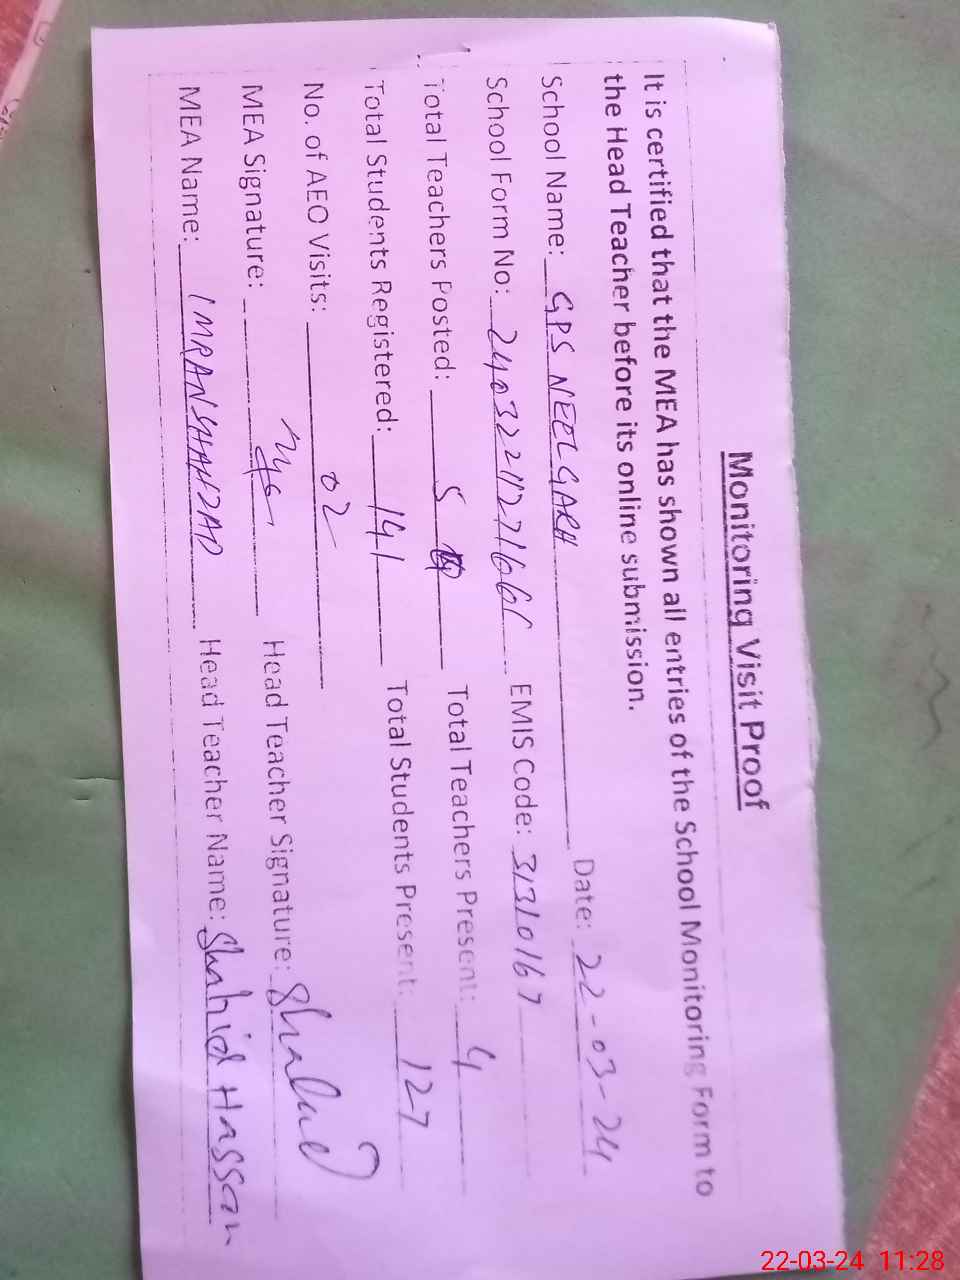 Monitoring Visit Proof
It is certified that the MEA has shown all entries of the School Monitoring Form to
the Head Teacher before its online submission.
School Name: GPS NEELGARH Date: 22-03-24
School Form No: EMIS Code: 31310167
Total Teachers Posted: 5 Total Teachers Present: 4
Total Students Registered: 141 Total Students Present: 127
No. of AEO Visits: 02
MEA Signature: Head Teacher Signature: Shahid
MEA Name: IMRAN SHAHZAD Head Teacher Name: Shahid Hassan
22-03-24 11:28